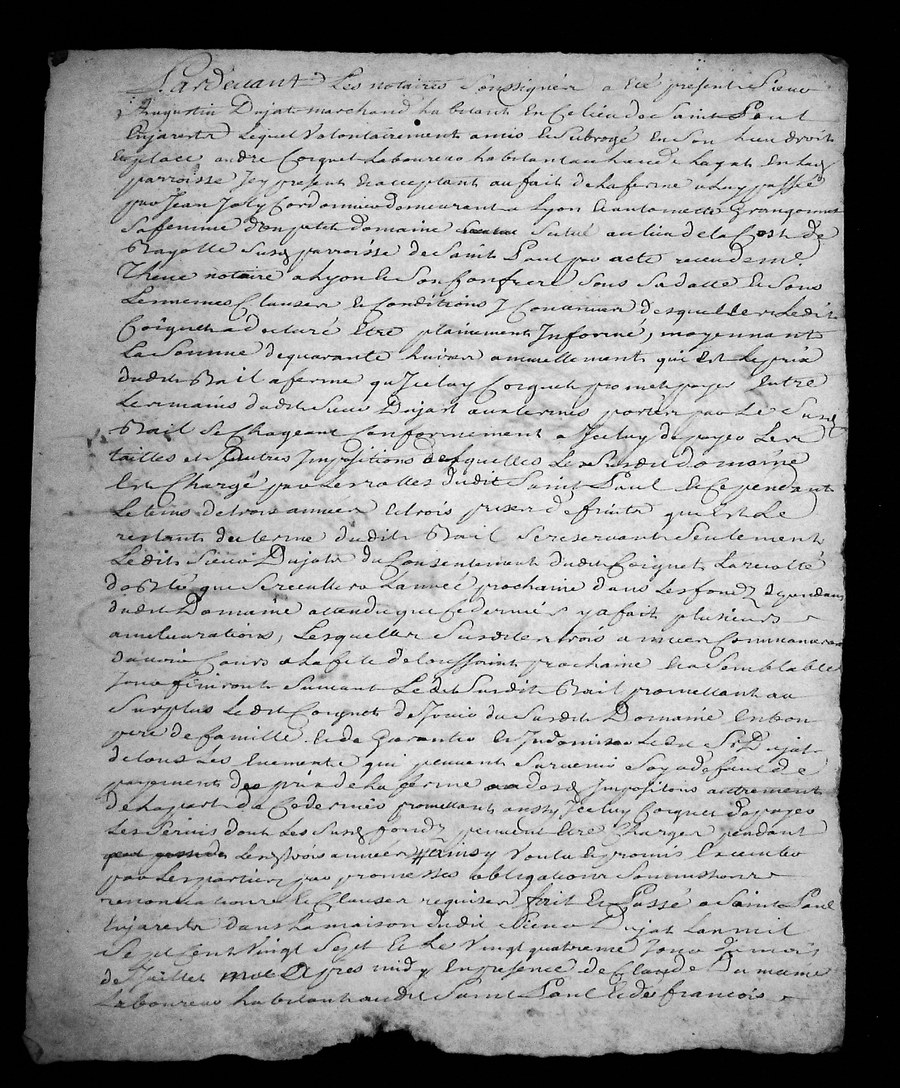 Pardevant Les notaires Soussignés a eté present Sieur
Augustin Dujat marchand habitant En Ce lieu de Saint Paul
Enjarests Lequel Volontairement a mis et Subrogé En Son lieu droit
En place andré Coignet Laboureur habitant au
parroisse Icy present et acceptant au fait de la ferme a Luy passée
par Jean Joly Cordonnier demeurant a Lyon et antoinette
Sa femme d'un petit domaine Situé au lieu de la Coste de
Susd parroisse de Saint Paul par acte receu de me
notaire a Lyon et Son Confrere Sous Sa datte et Sous
Les memes Clauses et Conditions y Contenues desquelles Ledit
Coignet a declaré Etre plainement Informé, moyennant
La Somme de quarante livres annuellement qui Est Le prix
dudit Bail a ferme qu'Iceluy Coignet promet payer Entre
Les mains dudit Sieur Dujat aux termes portés par Le Susd
Bail Se Chargeant Conformement a Iceluy de payer Les
tailles et autres Impositions desquelles Le Susdit domaine
Est Chargé par Les rolles dudit Saint Paul et Ce pendant
Le tems de trois années et trois prises de fruits qui Est Le
restant du terme dudit Bail Se reservant Seulement
Ledit Sieur Dujat du Consentement dudit Coignet La recolte
du Blé que Se recueillera L'année prochaine dans Les fonds dependans
dudit Domaine attendu que Ce dernier y a fait plusieurs
ameliorations, Lesquelles Susdites trois années Commanceront
d'avoir Cours a La fete de toussaint prochaine Et a Semblable
Jour finiront Suivant Ledit Susdit Bail promettant au
Surplus Ledit Coignet de Jouir du Susdit Domaine En bon
pere de famille et de Garantir et Indemniser Ledit Sr Dujat
de tous Les Evenements qui peuvent Survenir Soy a defaut de
payement des prix de La ferme Impositions autrement
De La part de Ce dernier promettant aussy Iceluy Coignet de payer
Les Servis dont Les Susd fonds peuvent Etre Chargés pendant
Les trois années ainsy Voulu et promis Executer
par Les parties par promesses obligations Soumissions
renonciations et Clauses requises fait et Passé a Saint Paul
Enjarests dans La maison dudit Sieur Dujat L'an mil
Sept Cent Vingt Sept Et Le Vingt quatrieme Jour du mois
de Juillet apres midy En presence de Claude Dumaine
Laboureur habitant audit Saint Paul et de francois